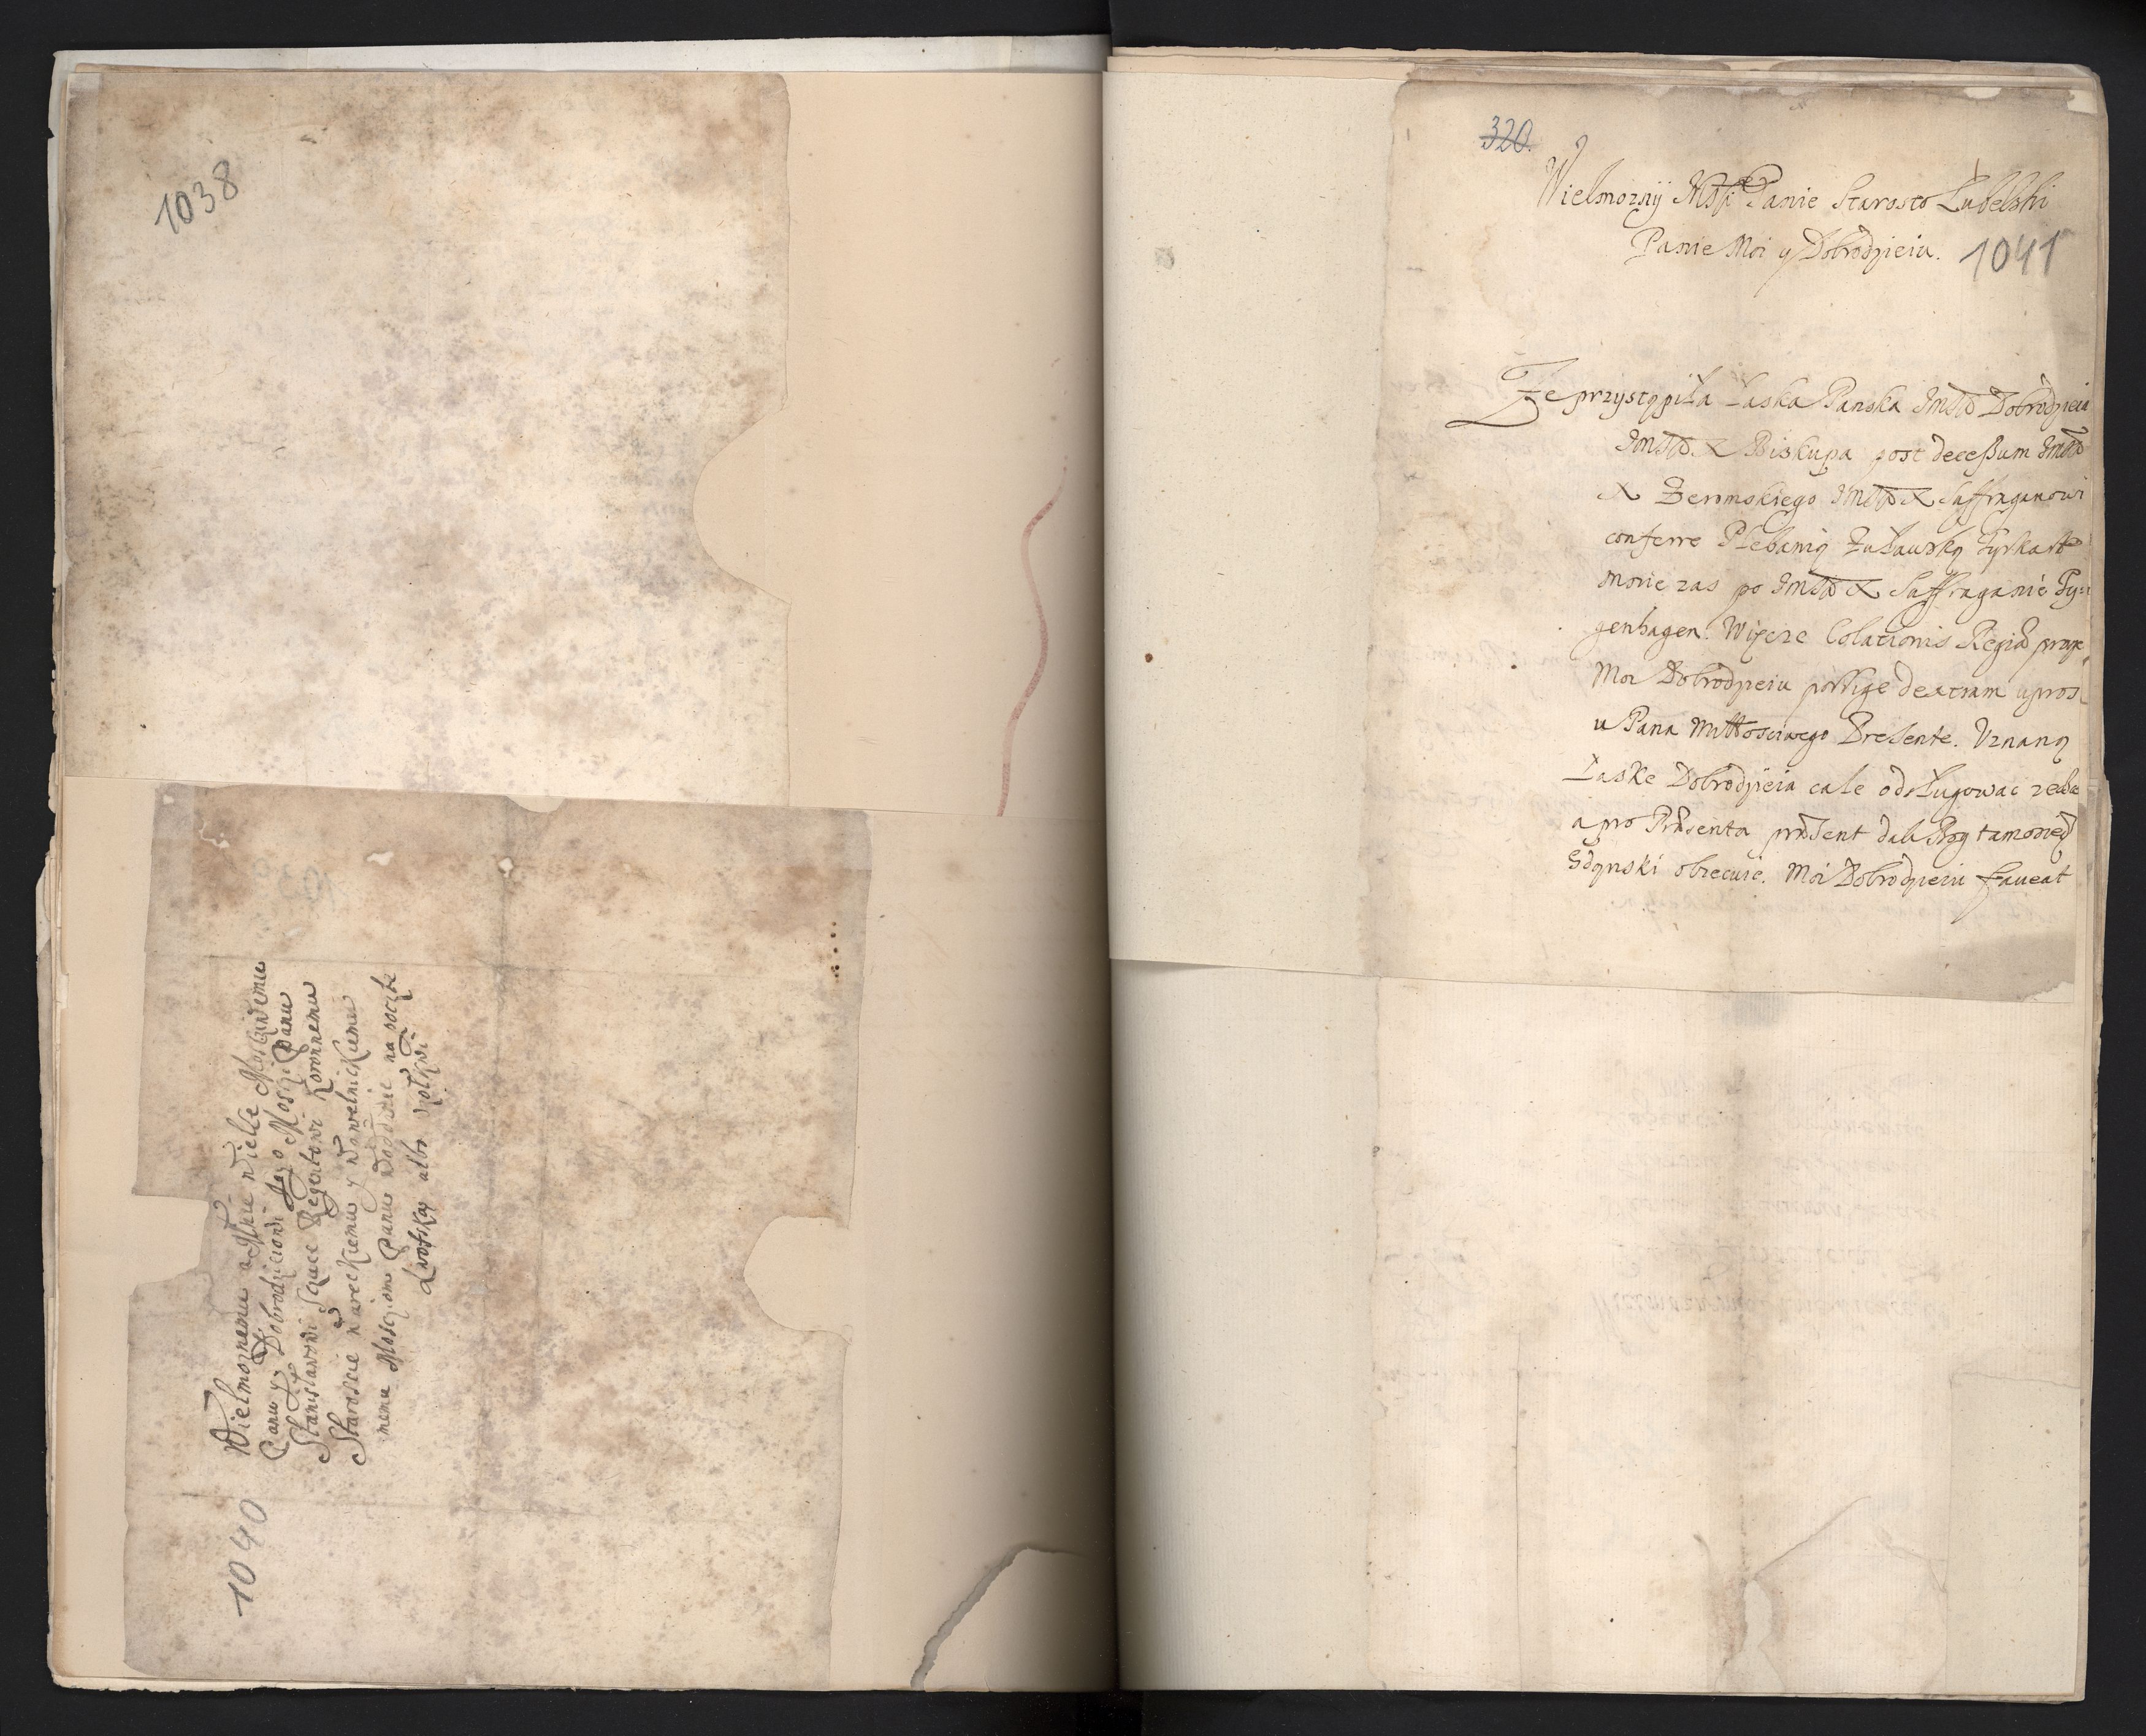 1038
1040
Wielmoznemu a Mnie Wielce Mosciwemu
Panu y Dobrodzieiowi Jego Mosci Panu
Stanislawowi Szczuce Regentowi Koronnemu
Staroscie Wareckiemu y Wonwelnickiemu
memu Mosciwemu Panu
albo
320.
Wielmozny Mśći Panie Starosto Lubelski
Panie Moi y Dobrodzieiu. 1041
Ze przystąpiła Łaska Panska JMśći Dobrodzieia
JMśći X Biskupa post decessum JMśći
X Zeromskiego JMśći X Suffraganowi
conferre Plebanią
mnie zas po JMśći X Suffraganie Ty=
genhagen. Colationis Regiæ
Moi Dobrodzieiu porrige dextram upros
u Pana Miłłosciwego Presente. Uznaną
Łaske Dobrodzieia cale odsługowac
a pro Præsenta præsent
Gdanski obiecuie. Moi Dobrodzieiu faveat